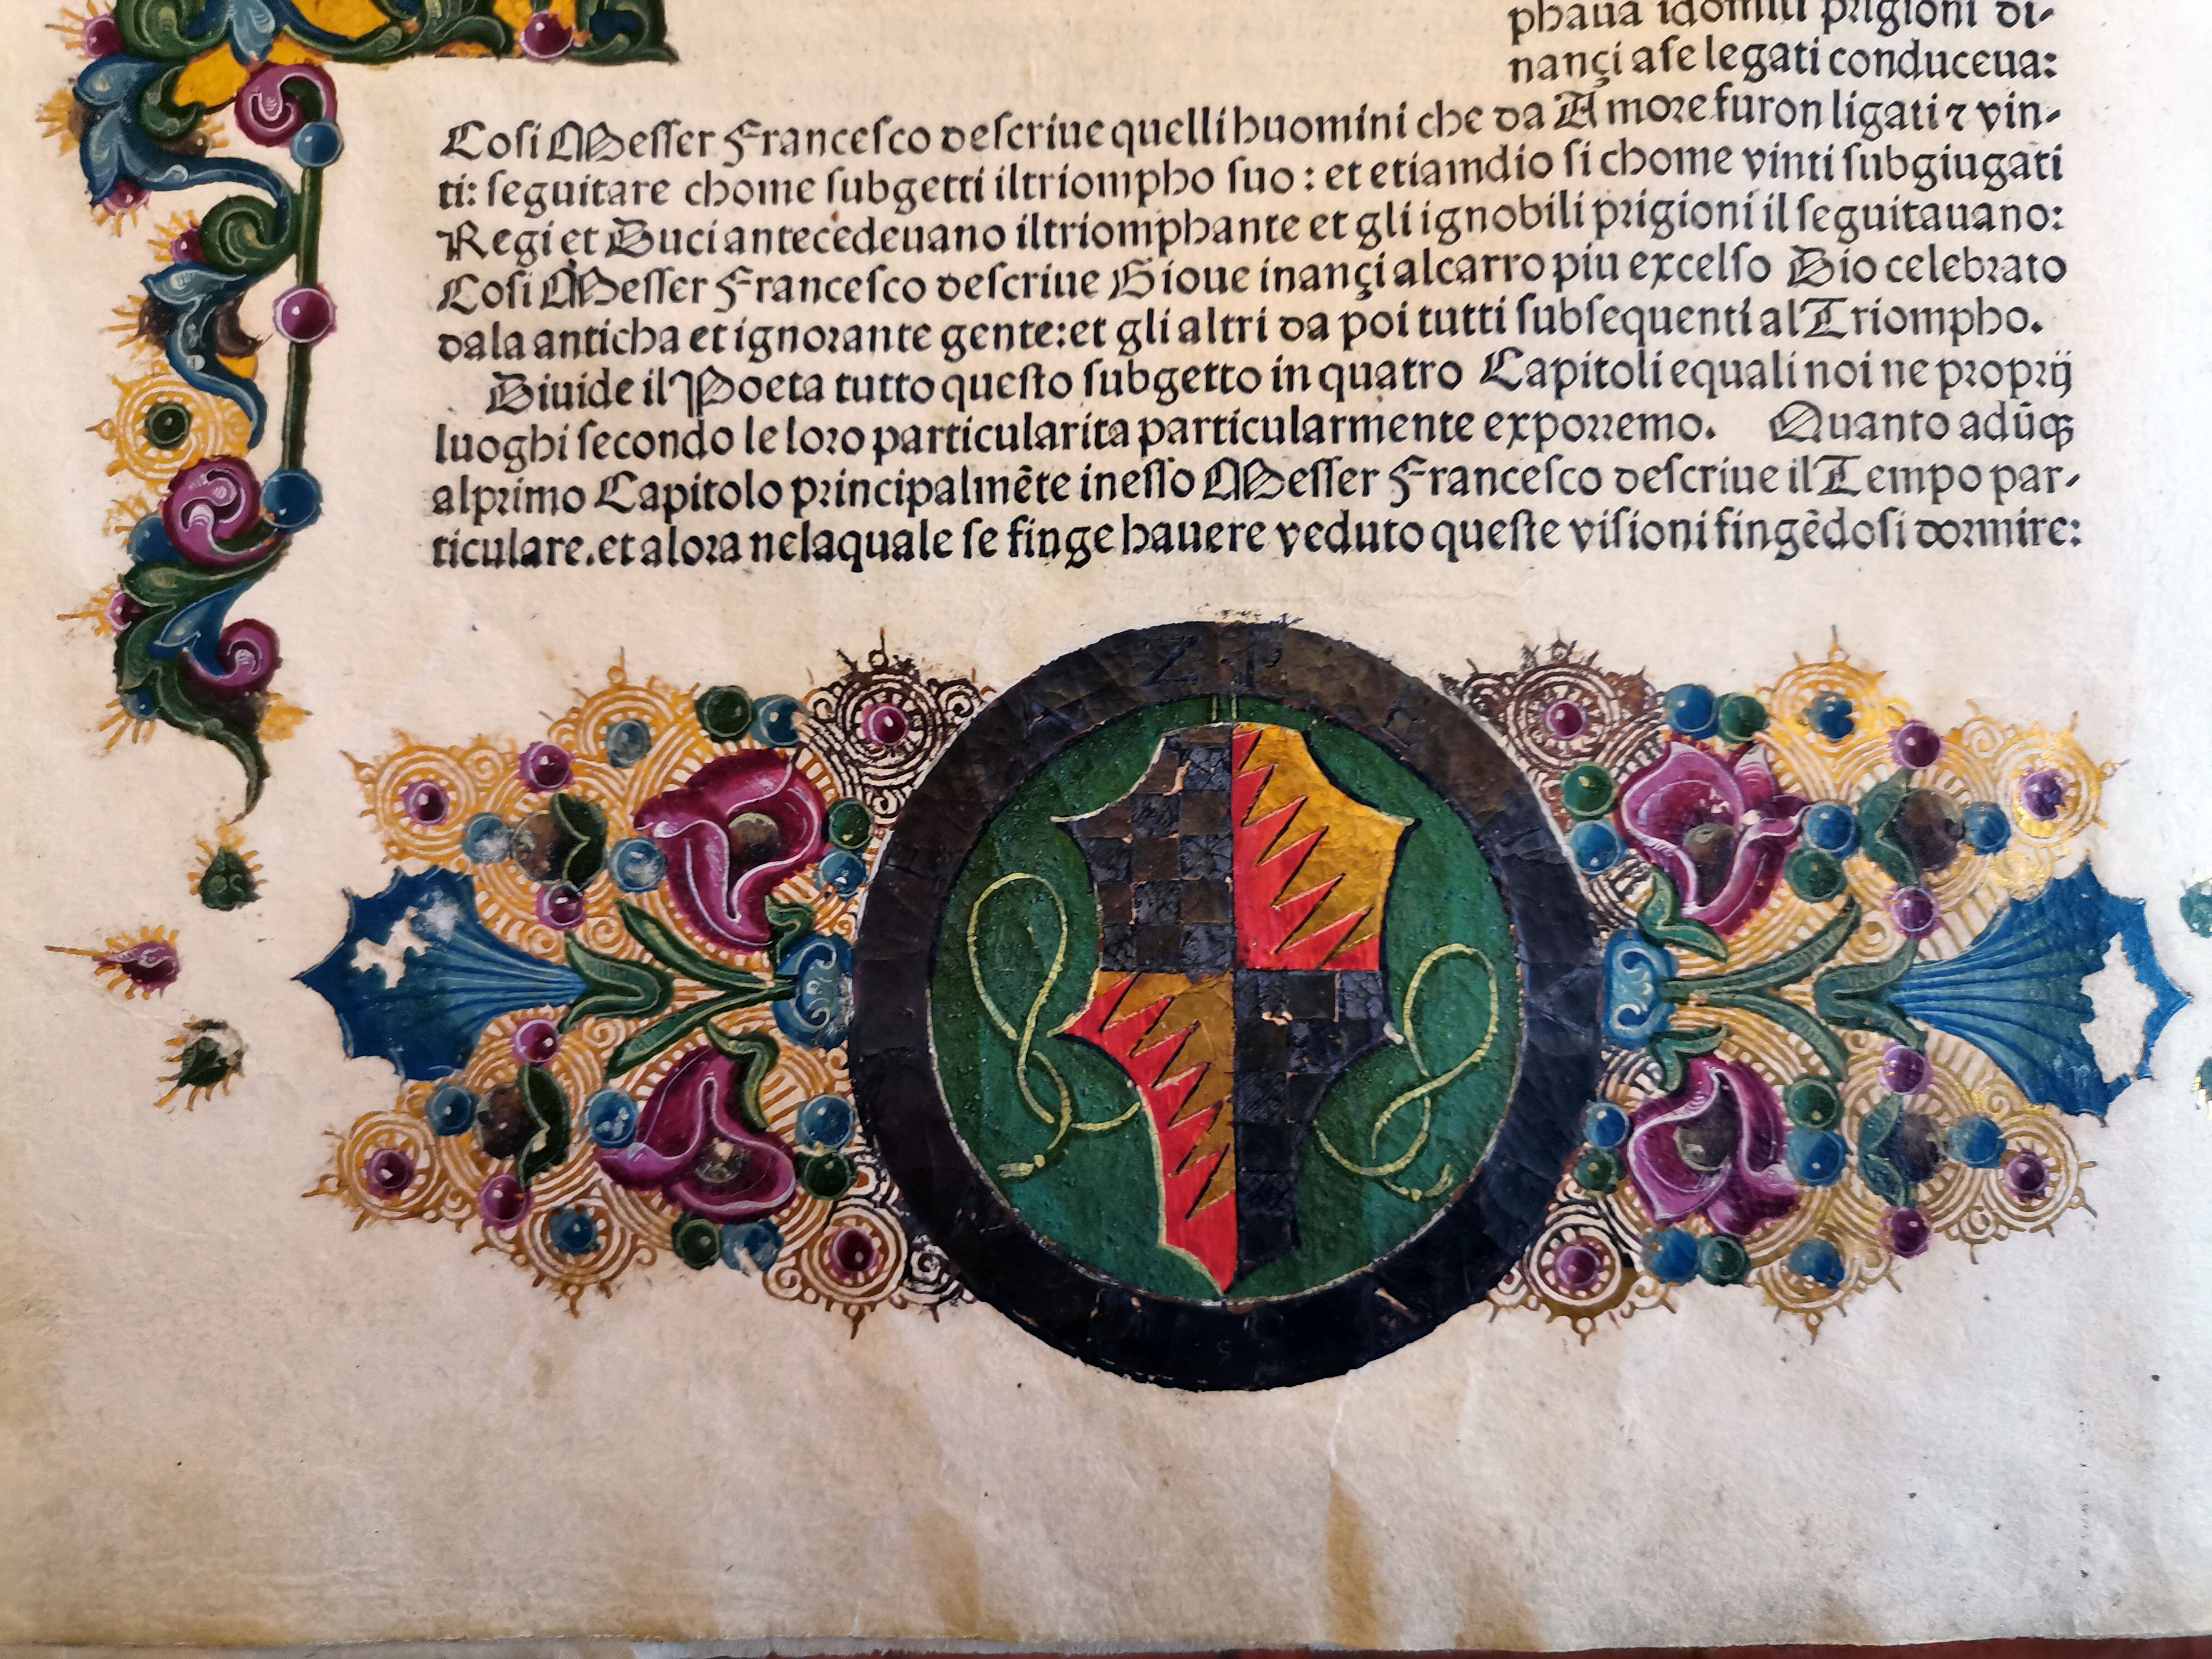 phaua idomiti prigioni di-
nançi ase legati conduceua:
Cosi Messer Francesco descriue quelli huomini che da Amore furon ligati ⁊ vin-
ti: seguitare chome subgetti iltriompho suo: et etiamdio si chome vinti subgiugati
Regi et Duci antecedeuano iltriomphante et gli ignobili prigioni il seguitauano:
Cosi Messer Francesco descriue Gioue inançi alcarro piu excelso Dio celebrato
dala anticha et ignorante gente: et gli altri da poi tutti subsequenti al Triompho.
Diuide il Poeta tutto questo subgetto in quatro Capitoli equali noi ne proprij
luoghi secondo le loro particularita particularmente exporremo. Quanto adūqꝫ
alprimo Capitolo principalmēte inesso Messer Francesco descriue il Tempo par-
ticulare. et alora nelaquale se finge hauere veduto queste visioni fingēdosi dormire: